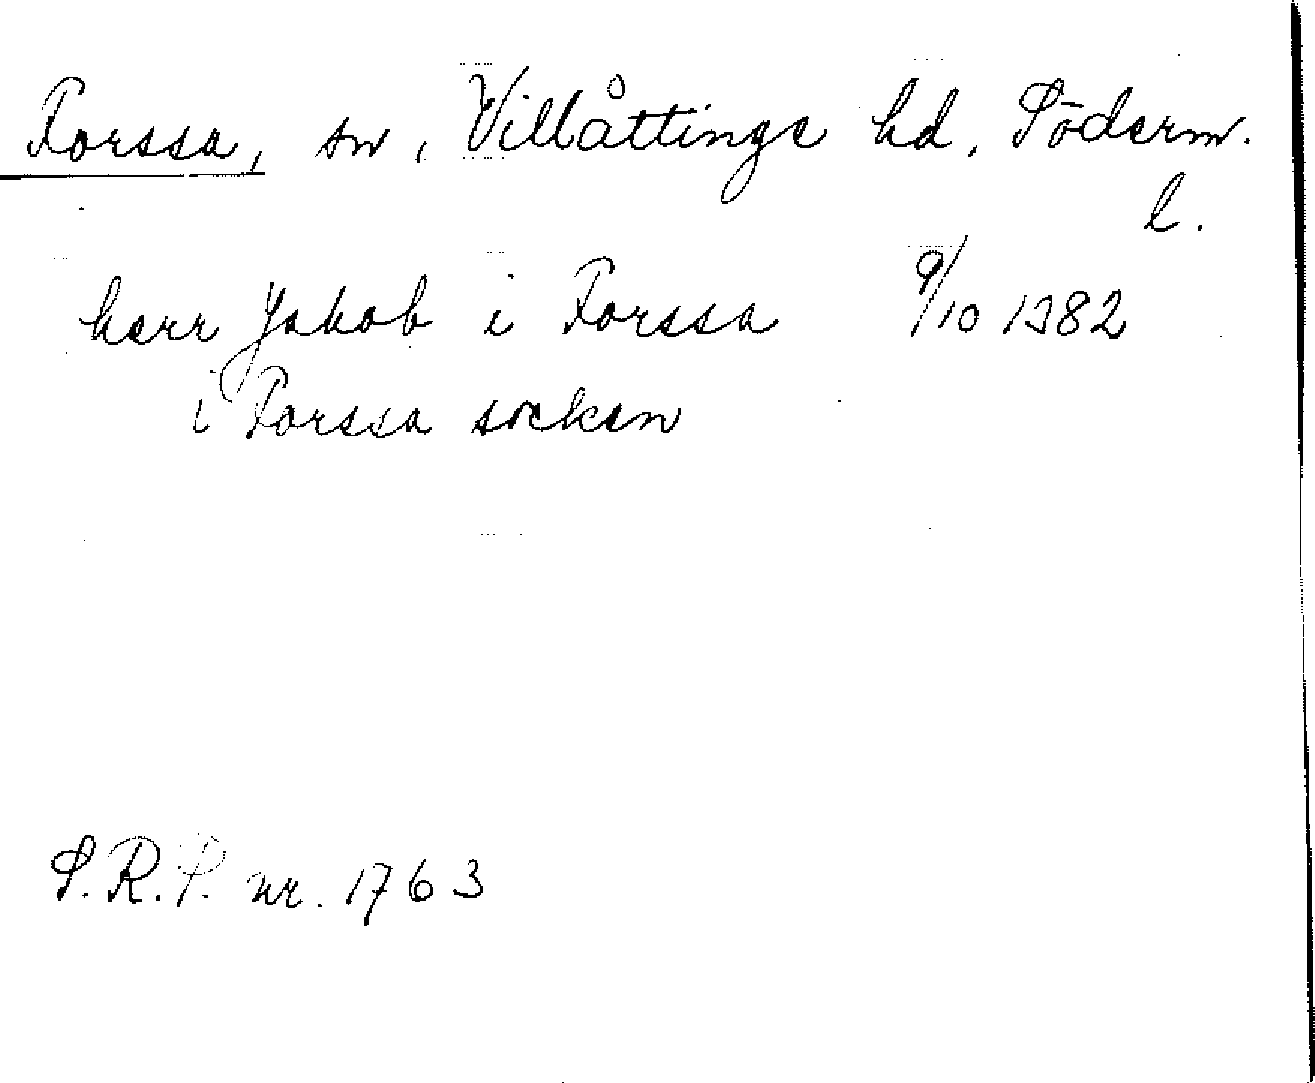 Forssa, sn, Villåttinge hd, Söderm.
l.
herr Jakob i Forssa 9/10 1382
i Forssa socken
S.R.P. nr. 1763